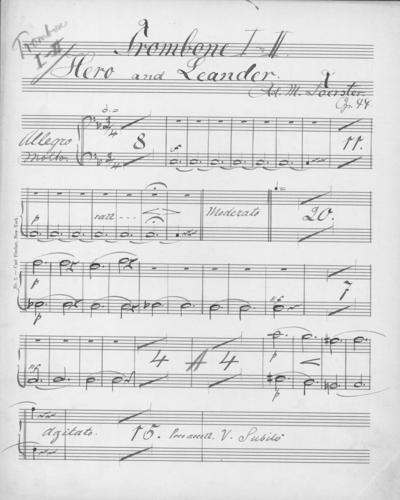 Trombone
I-II
Trombone I-II
Hero and Leander.
Ad. M. Foerster.
Op. 44
Allegro
molto.
3/4
8
11.
p
rall
Moderato
20.
p
p
7
4 A 4
p
Agitato. 15. Poco accell. V. Subito